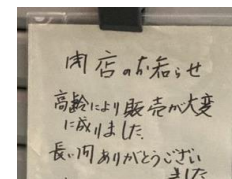 閉店のお知らせ
高齢により販売が大変
に成りました
長い間ありがとうござい
ました